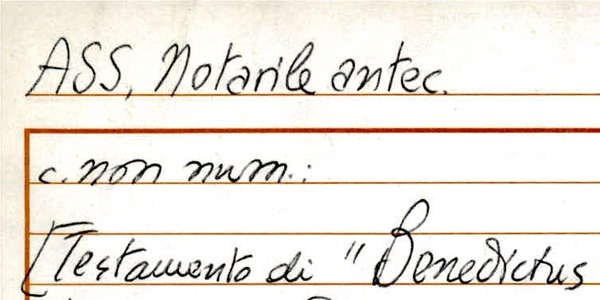 ASS, Notarile antec.
c. non num.:
[Testamento di "Benedictus